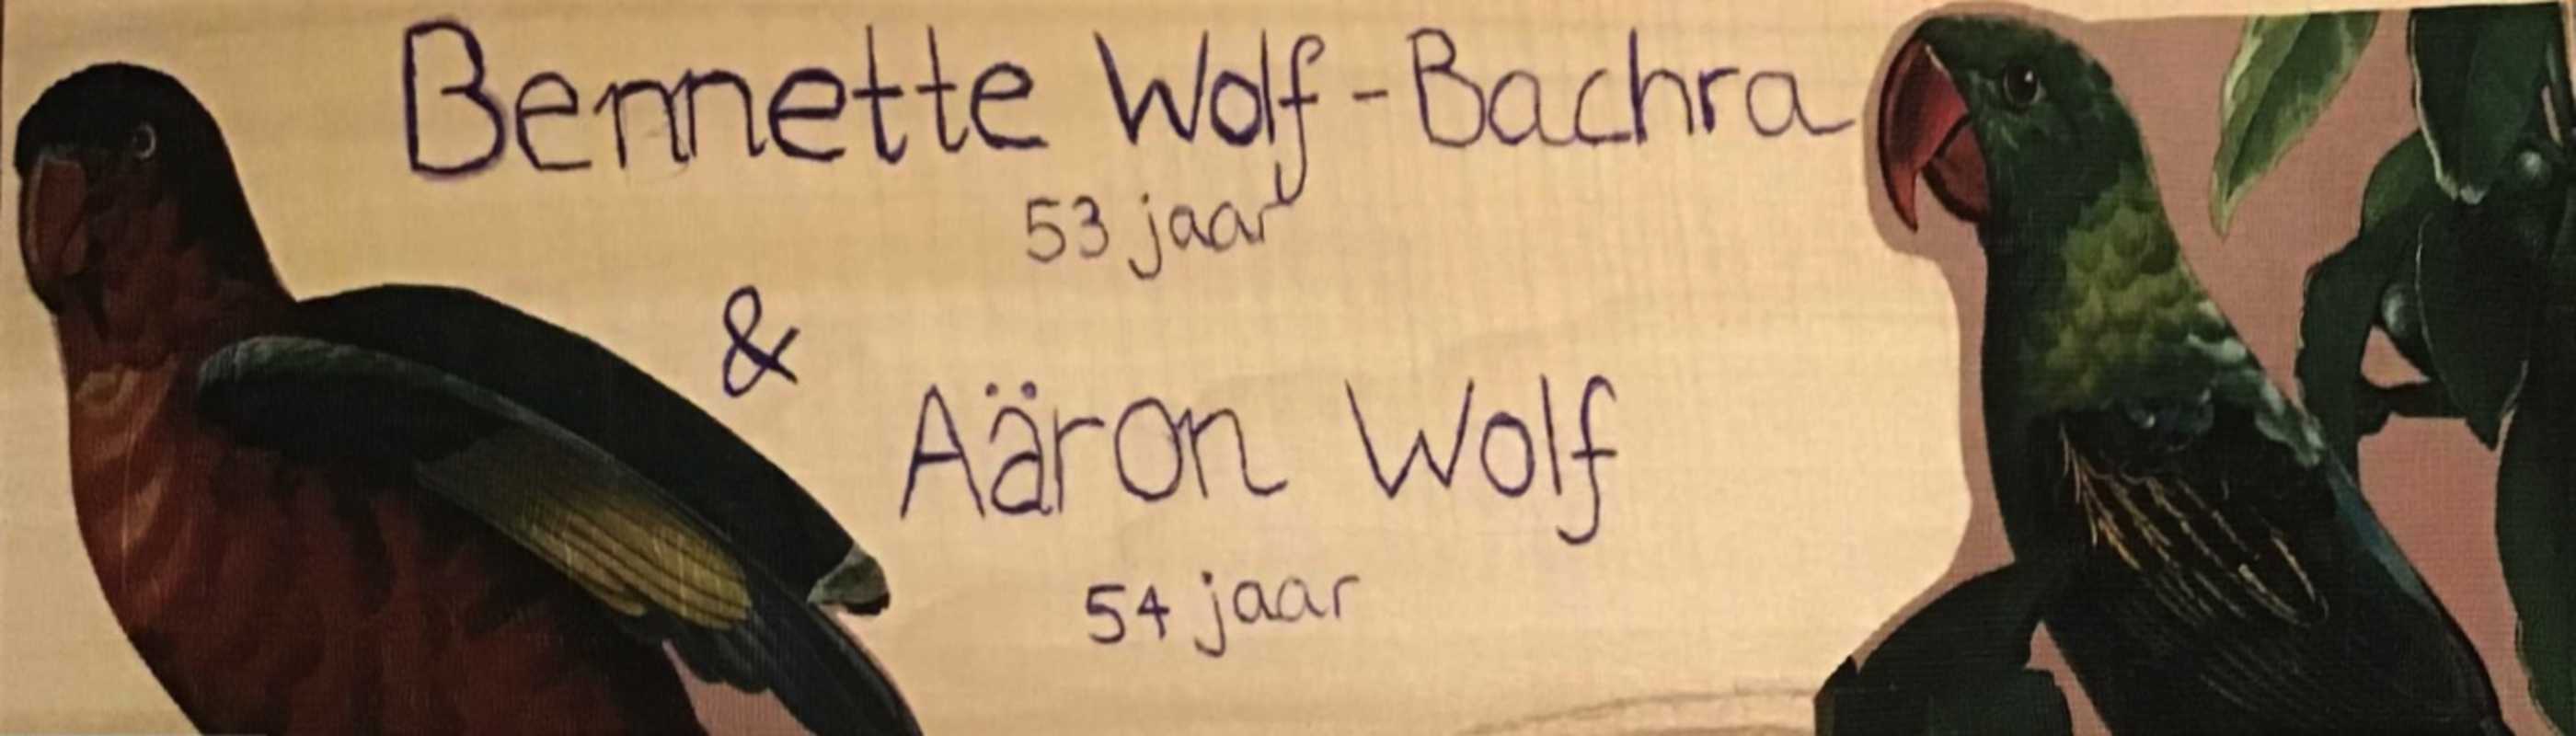 Bennette Wolf-Bachra
53 jaar
&
Aäron Wolf
54 jaar